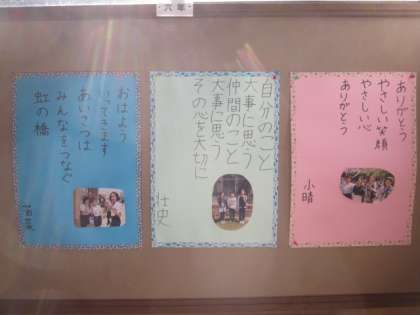 六年
ありがとう
やさしい笑顔
やさしい心
ありがとう
小晴
自分のこと
大事に思う
仲間のこと
大事に思う
その心を大切に
壮史
おはよう
いってきます
あいさつは
みんなをつなぐ
虹の橋